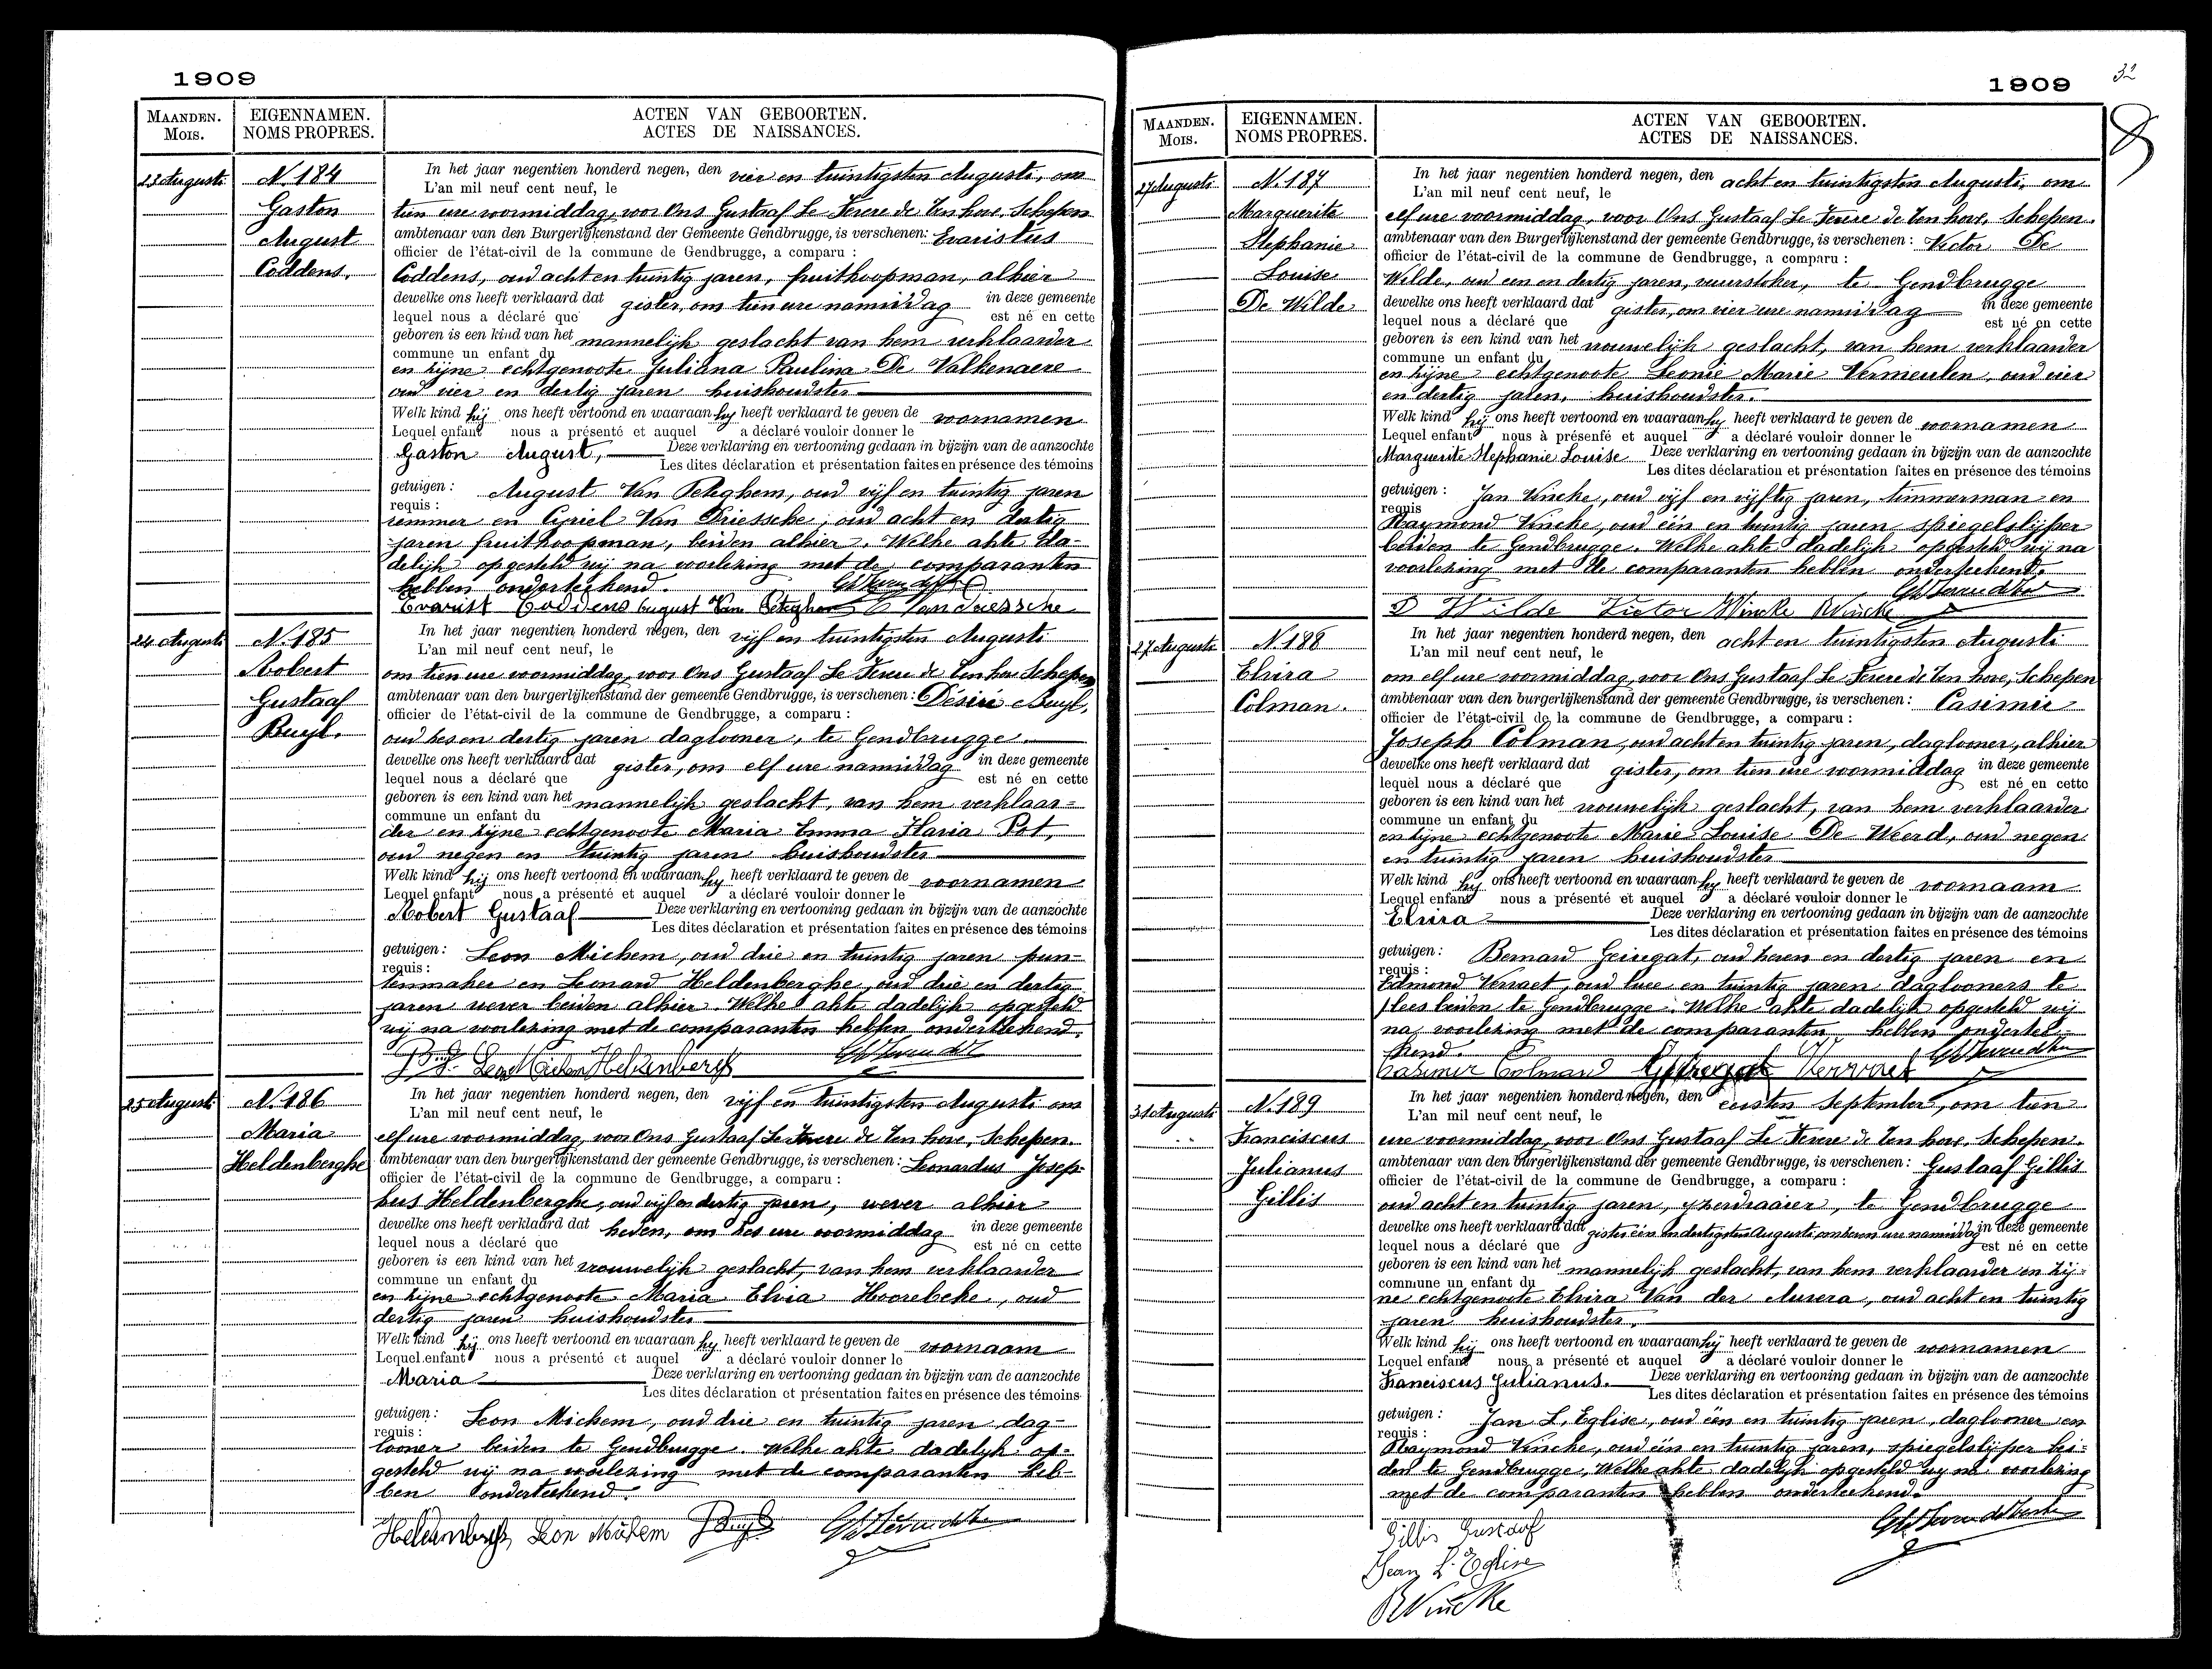 1909
MAANDEN.
MOIS.
EIGENNAMEN.
NOMS PROPRES.
ACTEN VAN GEBOORTEN.
ACTES DE NAISSANCES.
23 Augusti
N. 184
Gaston
August
Coddens.
In het jaar negentien honderd negen, den vier en twintigsten Augusti, om
L'an mil neuf cent neuf, le
tien ure voormiddag, voor Ons Gustaaf Le Fevere de Ten hove, Schepen
ambtenaar van den Burgerlijkenstand der Gemeente Gendbrugge, is verschenen: Evaristus
officier de l'état-civil de la commune de Gendbrugge, a comparu :
Coddens, oud acht en twintig jaren, fruitkoopman, alhier
dewelke ons heeft verklaard dat gister, om tien ure namiddag in deze gemeente
lequel nous a déclaré que est né en cette
geboren is een kind van het mannelijk geslacht van hem verklaarder
commune un enfant du
en zijne echtgenoote Juliana Paulina De Valkenaere
oud vier en dertig jaren huishoudster
Welk kind hij ons heeft vertoond en waaraan hy heeft verklaard te geven de voornamen
Lequel enfant nous a présenté et auquel a déclaré vouloir donner le
Gaston August, Deze verklaring en vertooning gedaan in bijzijn van de aanzochte
Les dites déclaration et présentation faites en présence des témoins
getuigen : August Van Peteghem, oud vijf en twintig jaren
requis :
remmer en Cyriel Van Driessche, oud acht en dertig
jaren fruitkoopman, beiden alhier. Welke akte da-
delijk opgesteld wij na voorlezing met de comparanten
hebben onderteekend.
Evarist Coddens August Van Peteghem C Van driessche
24 Augusti
N. 185
Robert
Gustaaf
Buyl.
In het jaar negentien honderd negen, den vijf en twintigsten Augusti
L'an mil neuf cent neuf, le
om tien ure voormiddag, voor Ons Gustaaf Le Fevere de Ten hove Schepen
ambtenaar van den burgerlijkenstand der gemeente Gendbrugge, is verschenen: Désiré Buyl,
officier de l'état-civil de la commune de Gendbrugge, a comparu :
oud zes en dertig jaren daglooner, te Gendbrugge.
dewelke ons heeft verklaard dat gister, om elf ure namiddag in deze gemeente
lequel nous a déclaré que est né en cette
geboren is een kind van het mannelijk geslacht, van hem verklaar=
commune un enfant du
der en zijne echtgenoote Maria Emma Flavia Pot,
oud negen en twintig jaren huishoudster
Welk kind hij ons heeft vertoond en waaraan hy heeft verklaard te geven de voornamen
Lequel enfant nous a présenté et auquel a déclaré vouloir donner le
Robert Gustaaf Deze verklaring en vertooning gedaan in bijzijn van de aanzochte
Les dites déclaration et présentation faites en présence des témoins
getuigen : Leon Michem, oud drie en twintig jaren pun-
requis :
tenmaker en Leonard Heldenberghe, oud drie en dertig
jaren wever beiden alhier. Welke akte dadelijk opgesteld
wij na voorlezing met de comparanten hebben onderteekend.
Buyl Leon Michem Heldenbergh
25 Augusti
N. 186
Maria
Heldenberghe
In het jaar negentien honderd negen, den vijf en twintigsten Augusti om
L'an mil neuf cent neuf, le
elf ure voormiddag, voor Ons Gustaaf Le Fevere de Ten hove, Schepen.
ambtenaar van den burgerlijkenstand der gemeente Gendbrugge, is verschenen : Leonardus Josep-
officier de l'état-civil de la commune de Gendbrugge, a comparu :
hus Heldenberghe, oud vijf en dertig jaren, wever alhier
dewelke ons heeft verklaard dat heden, om zes ure voormiddag in deze gemeente
lequel nous a déclaré que est né en cette
geboren is een kind van het vrouwelijk geslacht, van hem verklaarder
commune un enfant du
en zijne echtgenoote Maria Elvia Hoorebeke, oud
dertig jaren huishoudster
Welk kind hij ons heeft vertoond en waaraan hy heeft verklaard te geven de voornaam
Lequel enfant nous a présenté et auquel a déclaré vouloir donner le
Maria Deze verklaring en vertooning gedaan in bijzijn van de aanzochte
Les dites déclaration et présentation faites en présence des témoins
getuigen : Leon Michem, oud drie en twintig jaren dag-
requis :
looner beiden te Gendbrugge. Welke akte dadelijk op-
gesteld wij na voorlezing met de comparanten heb-
ben onderteekend.
Heldenbergh Leon Michem Buyl
1909
32
MAANDEN.
MOIS.
EIGENNAMEN.
NOMS PROPRES.
ACTEN VAN GEBOORTEN.
ACTES DE NAISSANCES.
27 Augusti
N. 187
Marguerite
Stephanie
Louise
De Wilde
In het jaar negentien honderd negen, den acht en twintigsten Augusti, om
L'an mil neuf cent neuf, le
elf ure voormiddag, voor Ons Gustaaf Le Fevere de Ten hove, Schepen.
ambtenaar van den Burgerlijkenstand der gemeente Gendbrugge, is verschenen : Victor De
officier de l'état-civil de la commune de Gendbrugge, a comparu :
Wilde, oud een en dertig jaren, vuurstoker, te Gendbrugge
dewelke ons heeft verklaard dat gister, om vier ure namiddag in deze gemeente
lequel nous a déclaré que est né en cette
geboren is een kind van het vrouwelijk geslacht, van hem verklaarder
commune un enfant du
en zijne echtgenoote Leonie Marie Vermeulen, oud vier
en dertig jaren, huishoudster.
Welk kind hij ons heeft vertoond en waaraan hy heeft verklaard te geven de voornamen
Lequel enfant nous à présenté et auquel a déclaré vouloir donner le
Marguerite Stephanie Louise Deze verklaring en vertooning gedaan in bijzijn van de aanzochte
Les dites déclaration et présentation faites en présence des témoins
getuigen : Jan Vincke, oud vijf en vijftig jaren, timmerman en
requis
Raymond Vincke, oud één en twintig jaren spiegelslijper
beiden te Gendbrugge. Welke akte dadelijk opgesteld wij na
voorlezing met de comparanten hebben onderteekend.
D Wilde Victor J Vincke R Vincke
27 Augusti
N. 188
Elvira
Colman.
In het jaar negentien honderd negen, den acht en twintigsten Augusti
L'an mil neuf cent neuf, le
om elf ure voormiddag, voor Ons Gustaaf Le Fevere de Ten hove, Schepen
ambtenaar van den burgerlijkenstand der gemeente Gendbrugge, is verschenen : Casimir
officier de l'état-civil de la commune de Gendbrugge, a comparu :
Joseph Colman, oud acht en twintig jaren, daglooner, alhier
dewelke ons heeft verklaard dat gister, om tien ure voormiddag in deze gemeente
lequel nous a déclaré que est né en cette
geboren is een kind van het vrouwelijk geslacht, van hem verklaarder
commune un enfant du
en zijne echtgenoote Marie Louise De Weerd, oud negen
en twintig jaren huishoudster
Welk kind hy ons heeft vertoond en waaraan hy heeft verklaard te geven de voornaam
Lequel enfant nous a présenté et auquel a déclaré vouloir donner le
Elvira Deze verklaring en vertooning gedaan in bijzijn van de aanzochte
Les dites déclaration et présentation faites en présence des témoins
getuigen : Bernard Geiregat, oud zeven en dertig jaren en
requis :
Edmond Vervaet, oud twee en twintig jaren daglooners te
beiden te Gendbrugge. Welke akte dadelijk opgesteld wij
na voorlezing met de comparanten hebben ondertee-
kend.
Casimir Colman Geiregat Vervaet
31 Augusti
N. 189
Franciscus
Julianus
Gillis
In het jaar negentien honderd negen, den eersten September, om tien
L'an mil neuf cent neuf, le
ure voormiddag, voor Ons Gustaaf Le Fevere de Ten hove, Schepen.
ambtenaar van den burgerlijkenstand der gemeente Gendbrugge, is verschenen : Gustaaf Gillis
officier de l'état-civil de la commune de Gendbrugge, a comparu :
oud acht en twintig jaren, yzerdraaier, te Gendbrugge
dewelke ons heeft verklaard dat gister één en dertigsten Augusti, om zeven ure namiddag in deze gemeente
lequel nous a déclaré que est né en cette
geboren is een kind van het mannelijk geslacht, van hem verklaarder en zij-
commune un enfant du
ne echtgenoote Elvira Van der Auwera, oud acht en twintig
jaren huishoudster.
Welk kind hij ons heeft vertoond en waaraan hij heeft verklaard te geven de voornamen
Lequel enfant nous a présenté et auquel a déclaré vouloir donner le
Franciscus Julianus. Deze verklaring en vertooning gedaan in bijzijn van de aanzochte
Les dites déclaration et présentation faites en présence des témoins
getuigen : Jan L'Eglise, oud één en twintig jaren, daglooner en
requis :
Raymond Vincke, oud één en twintig jaren, spiegelslijper bei=
den te Gendbrugge, Welke akte dadelijk opgesteld wij na voorlezing
met de comparanten hebben onderteekend.
Gillis Gustaaf
Jean L'Eglise
R Vincke